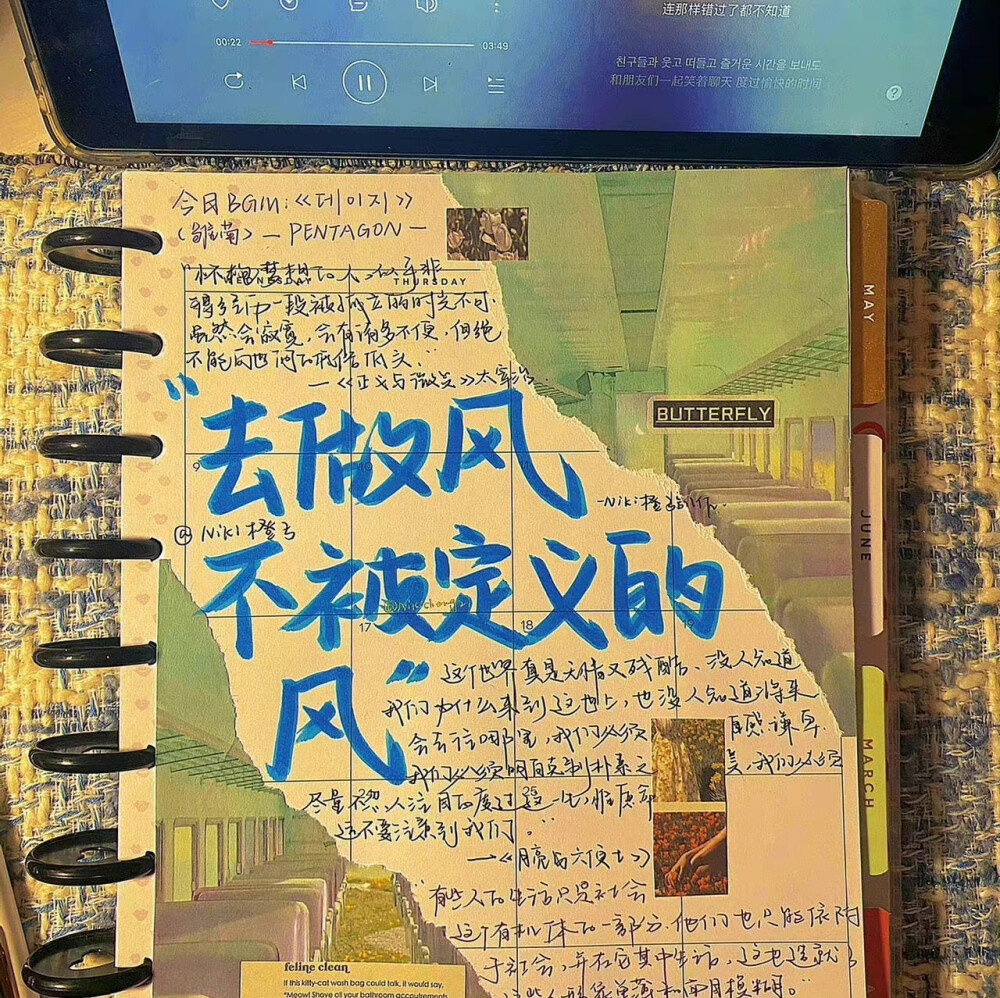 连那样错过了都不知道
00:22
03:49
친구들과 웃고 떠들고 즐거운 시간을 보내도
和朋友们一起笑着聊天 度过愉快的时间
?
今日BGM:《데이지》
(雏菊) — PENTAGON —
THURSDAY
"怀抱梦想的人似乎非
得经历一段被孤立的时光不可.
虽然会寂寞,会有诸多不便,但绝
不能向世间的低俗低头."
—《正义与微笑》太宰治
MAY
BUTTERFLY
"去做风
9
10
11
-Niki橙
@Niki橙
JUNE
不被定义的
17
18
19
风"
这个世界真是无情又残酷、没人知道
我们为什么来到这世上,也没人知道将来
会去往哪里,我们必须
自我谦卑.
我们必须明白克制朴素之
美,我们必须
尽量不惹人注目的度过这一生,
还不要注意到我们。"
—《月亮与六便士》
MARCH
"有些人的生活只是社会
这个有机体的一部分,他们也只能依附
于社会,并在它其中生活,这也造就了
这些人形象单薄和面目模糊。"
feline clean
If this kitty-cat wash bag could talk, it would say,
"Meow! Shove all your bathroom accoutrements